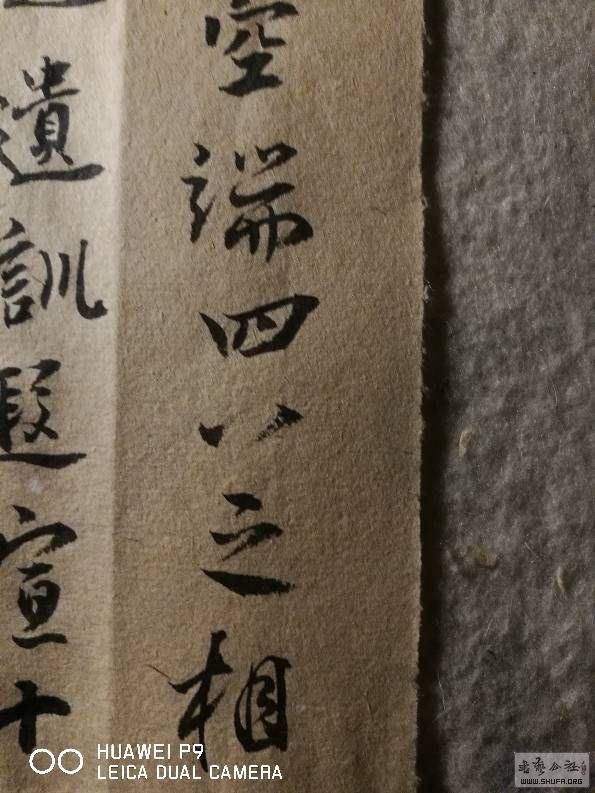 空端四八之相
遺訓遐宣十
HUAWEI P9
LEICA DUAL CAMERA
書藝公社
WWW.SHUFA.ORG